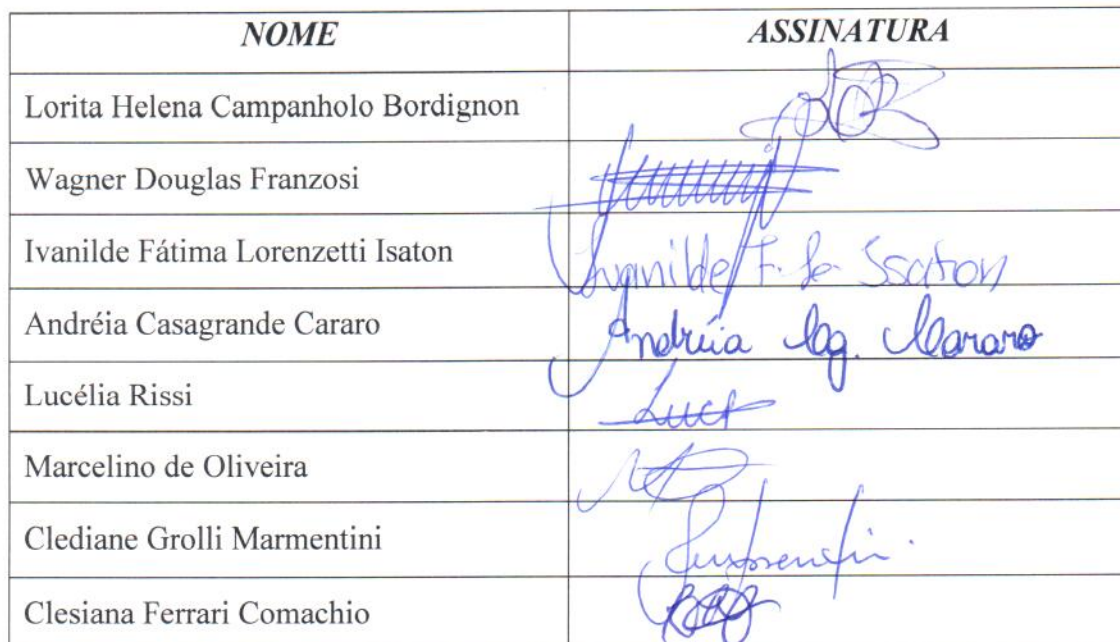 NOME ASSINATURA
Lorita Helena Campanholo Bordignon
Wagner Douglas Franzosi
Ivanilde Fátima Lorenzetti Isaton Ivanilde F. Ssaton
Andréia Casagrande Cararo Andréia Cararo
Lucélia Rissi
Marcelino de Oliveira
Clediane Grolli Marmentini
Clesiana Ferrari Comachio